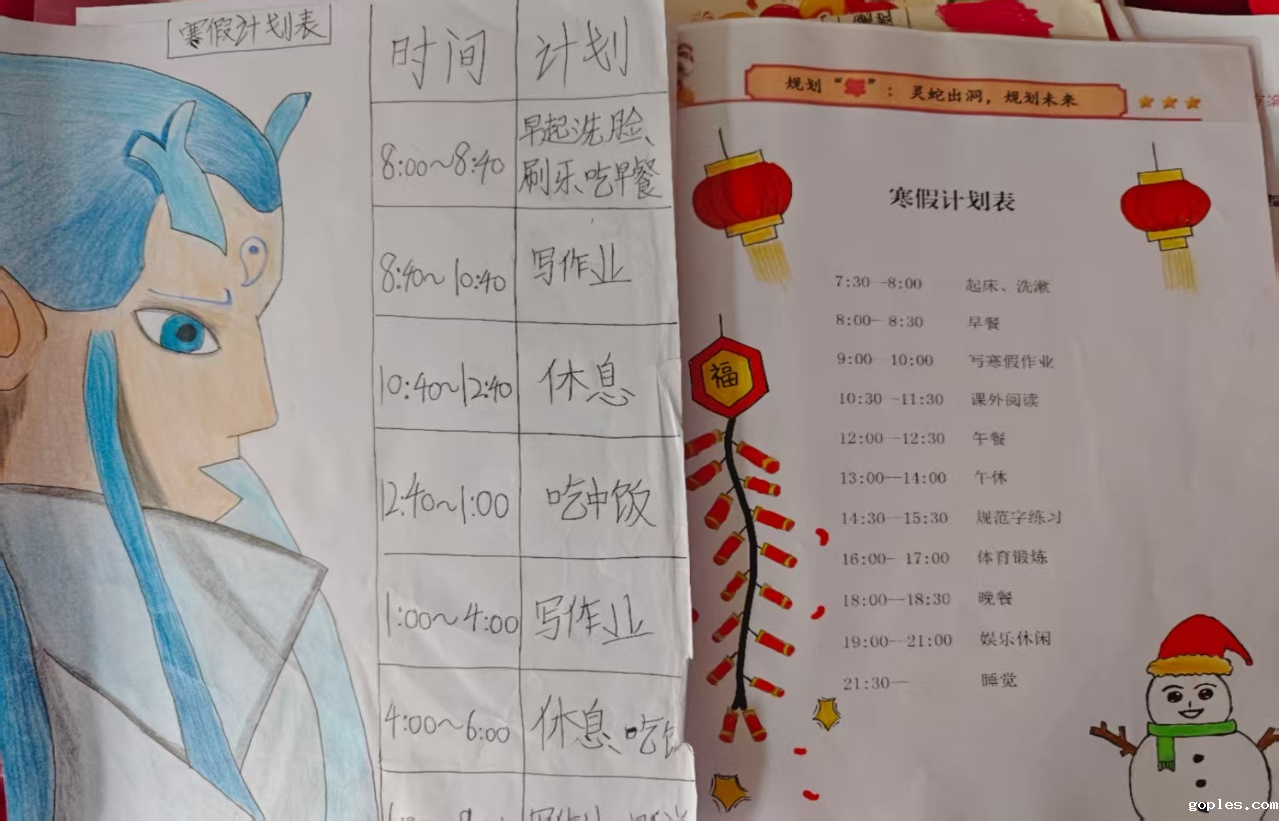 寒假计划表
时间 计划
8:00~8:40 早起洗脸、
刷乐吃早餐
8:40~10:40 写作业
10:40~12:40 休息
12:40~1:00 吃中饭
1:00~4:00 写作业
4:00~6:00 休息、吃
写作业
规划“年”：灵蛇出洞，规划未来
寒假计划表
7:30—8:00 起床、洗漱
8:00—8:30 早餐
9:00—10:00 写寒假作业
10:30—11:30 课外阅读
12:00—12:30 午餐
13:00—14:00 午休
14:30—15:30 规范字练习
16:00—17:00 体育锻炼
18:00—18:30 晚餐
19:00—21:00 娱乐休闲
21:30— 睡觉
福
goples.com